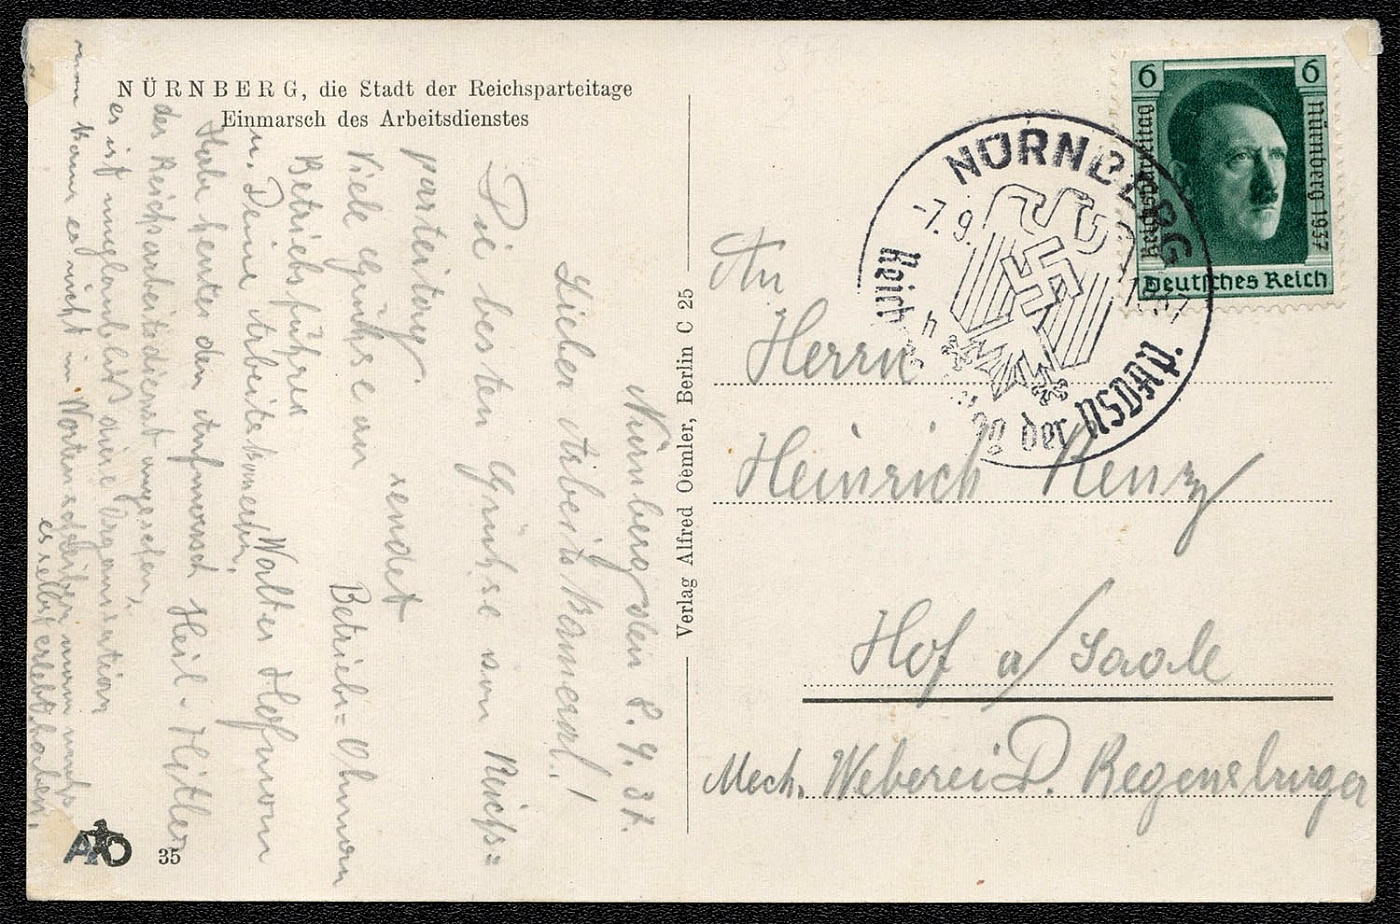 NÜRNBERG, die Stadt der Reichsparteitage
Einmarsch des Arbeitsdienstes
Nürnberg den 8. 9. 37.
Lieber Arbeitskamerad!
Die besten Grüße vom Reichs=
parteitag sendet
Viele Grüße an Betriebs=Obmann
Betriebsführer
u. Deine Arbeitskameraden, Walter Hofmann
Habe heute den Aufmarsch Heil-Hitler
des Reichsarbeitsdienst angesehen,
es ist unglaublich diese Organisation
man kann es nicht in Worten schildern man muß
es selbst erlebt haben.
35
Verlag Alfred Oemler, Berlin C 25
6 6
Reichsparteitag
Nürnberg 1937
Deutsches Reich
NÜRNBERG
-7. 9. 1937
Reichsparteitag der NSDAP.
An
Herrn
Heinrich Renz
Hof a/Saale
Mech. Weberei D. Regensburger